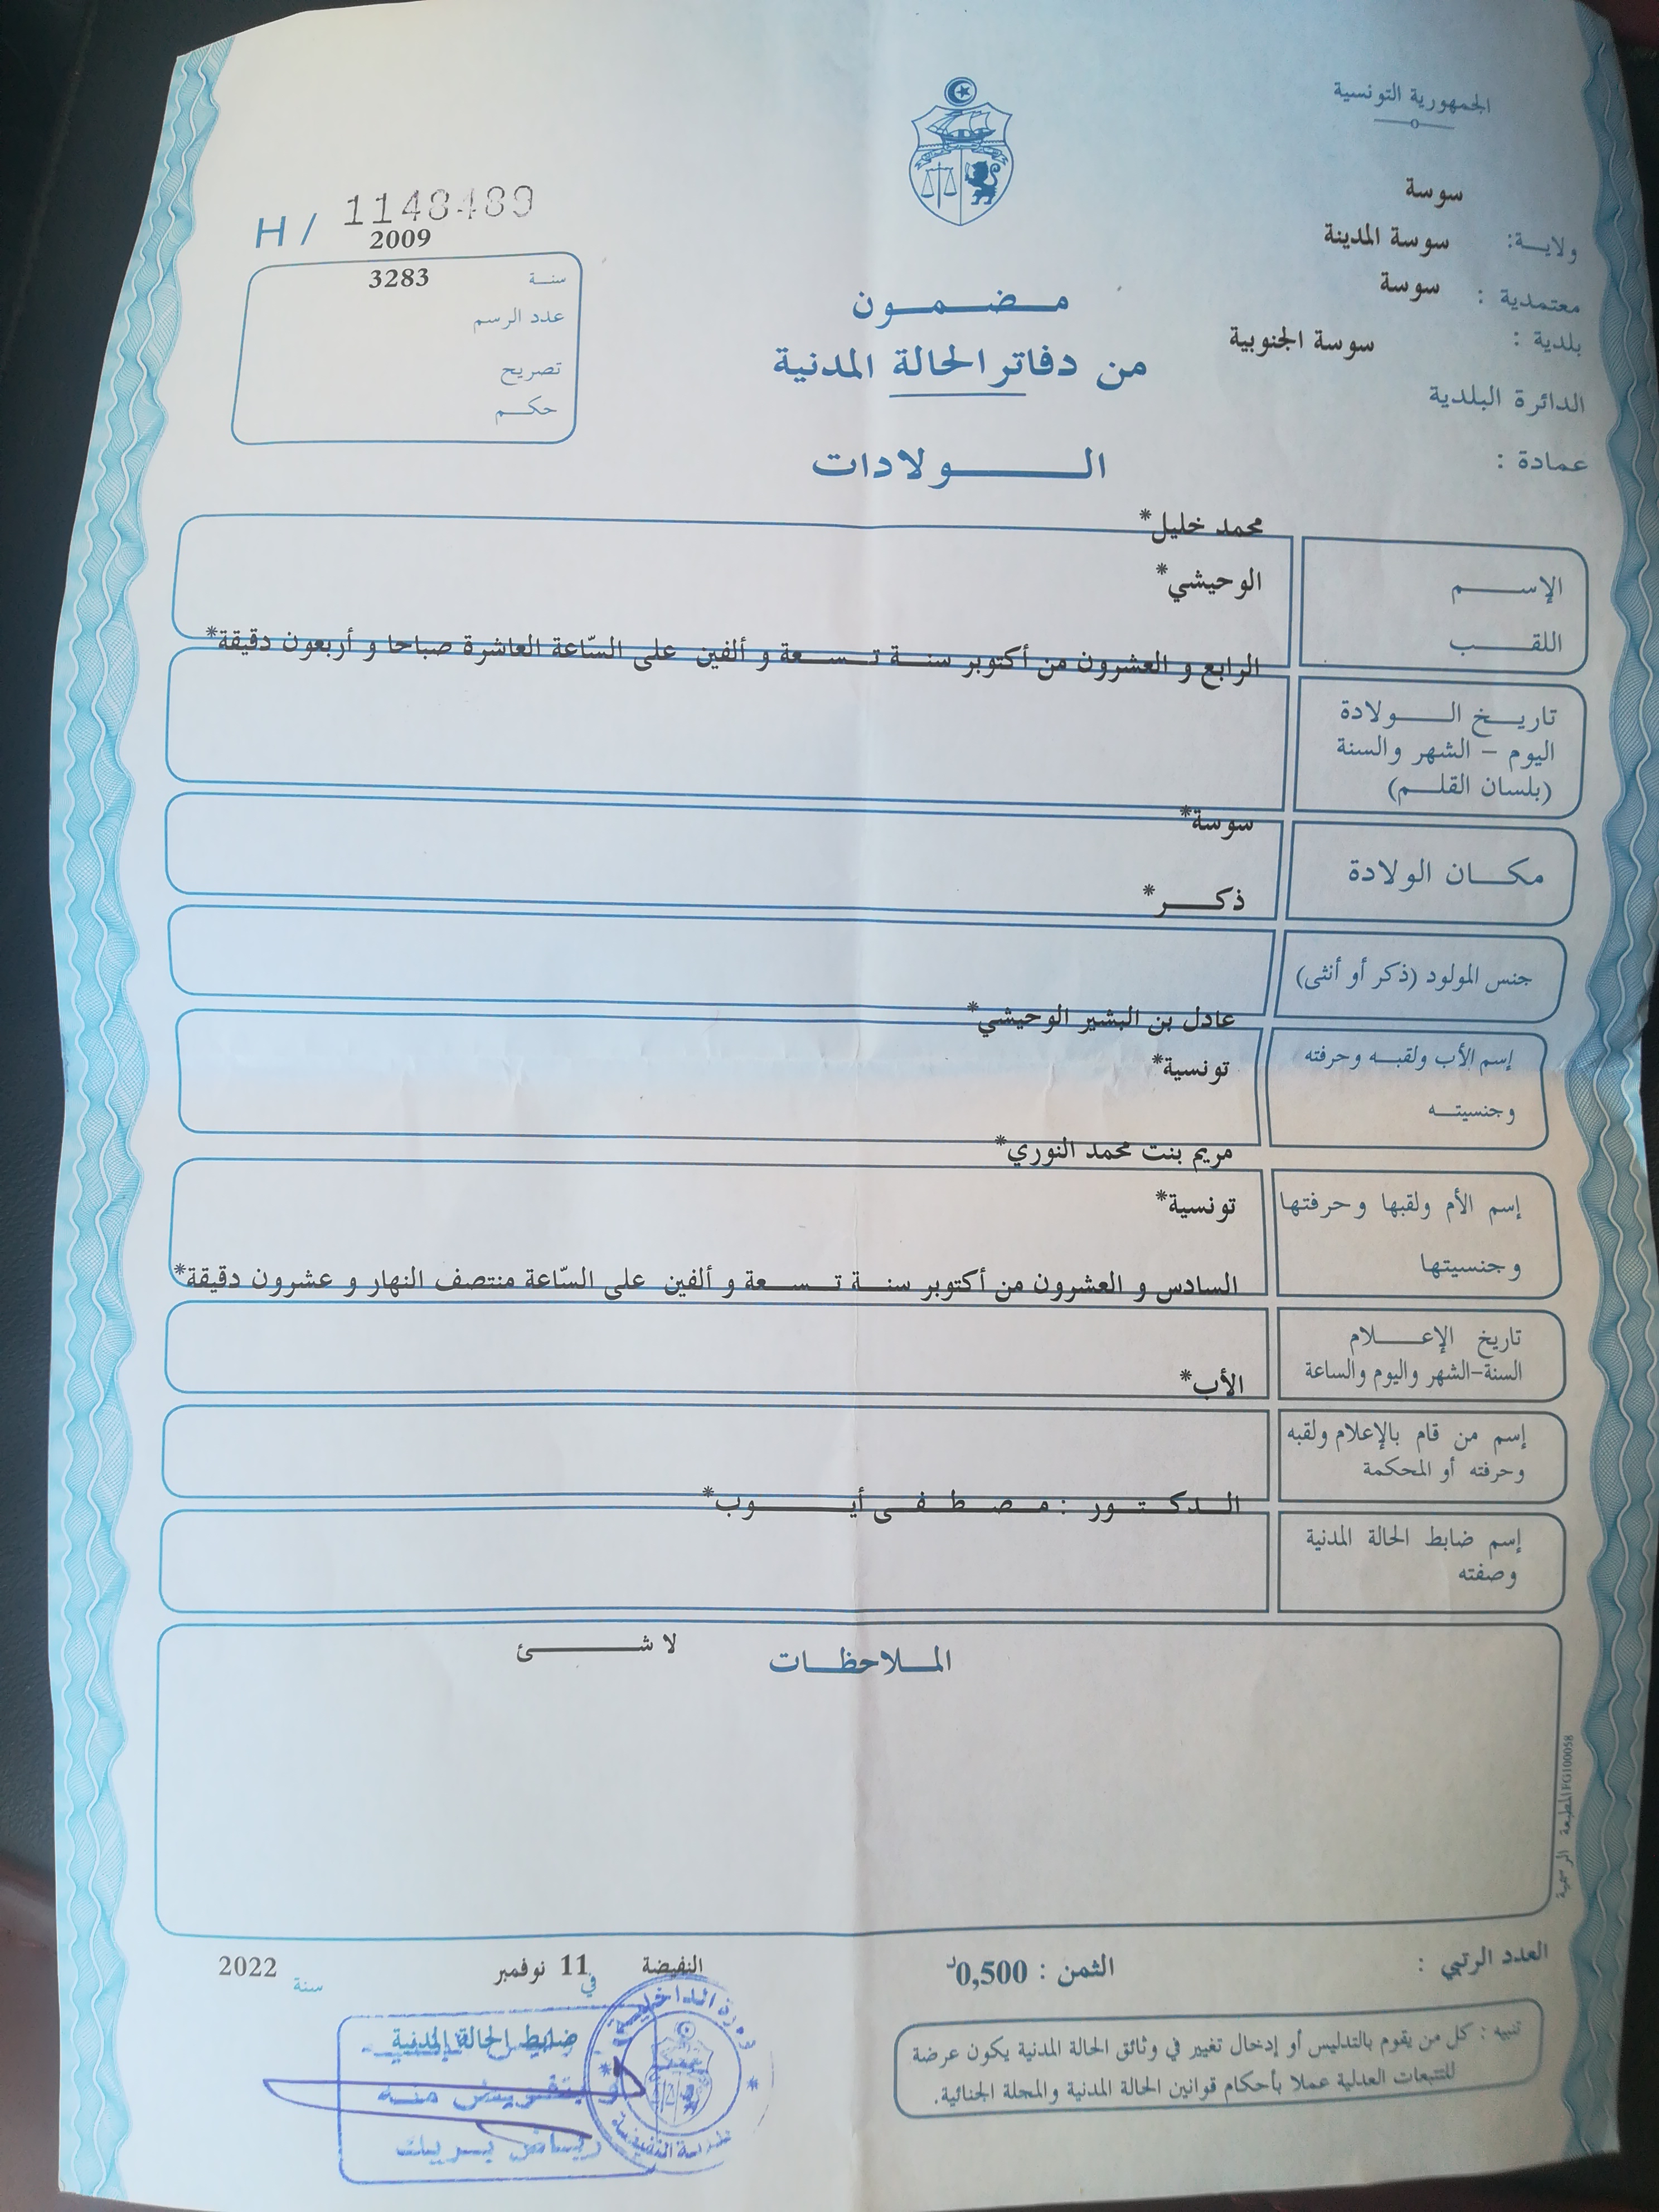 الجمهورية التونسية
سوسة
ولاية: سوسة المدينة
معتمدية : سوسة
بلدية : سوسة الجنوبية
الدائرة البلدية
عمادة :
H / 1148489
2009
سنة 3283
عدد الرسم
تصريح
حكم
مضمون
من دفاتر الحالة المدنية
الولادات
محمد خليل*
الإسم الوحيشي*
اللقب
الرابع و العشرون من أكتوبر سنة تسعة و ألفين على السّاعة العاشرة صباحا و أربعون دقيقة*
تاريخ الولادة
اليوم – الشهر والسنة
(بلسان القلم)
سوسة*
مكان الولادة
ذكر*
جنس المولود (ذكر أو أنثى)
عادل بن البشير الوحيشي*
إسم الأب ولقبه وحرفته
تونسية*
وجنسيته
مريم بنت محمد النوري*
إسم الأم ولقبها وحرفتها
تونسية*
وجنسيتها
السادس و العشرون من أكتوبر سنة تسعة و ألفين على السّاعة منتصف النهار و عشرون دقيقة*
تاريخ الإعلام
السنة-الشهر واليوم والساعة
الأب*
إسم من قام بالإعلام ولقبه
وحرفته أو المحكمة
الدكتور : مصطفى أيوب*
إسم ضابط الحالة المدنية
وصفته
الملاحظات لا شئ
المطبعة الرسمية
العدد الرتبي :
الثمن : 0,500د
النفيضة في 11 نوفمبر سنة 2022
تنبيه : كل من يقوم بالتدليس أو إدخال تغيير في وثائق الحالة المدنية يكون عرضة
للتتبعات العدلية عملا بأحكام قوانين الحالة المدنية والمجلة الجنائية.
ضابط الحالة المدنية
أو بتفويض منه
رياض بريك
وزارة الداخلية
النفيضة